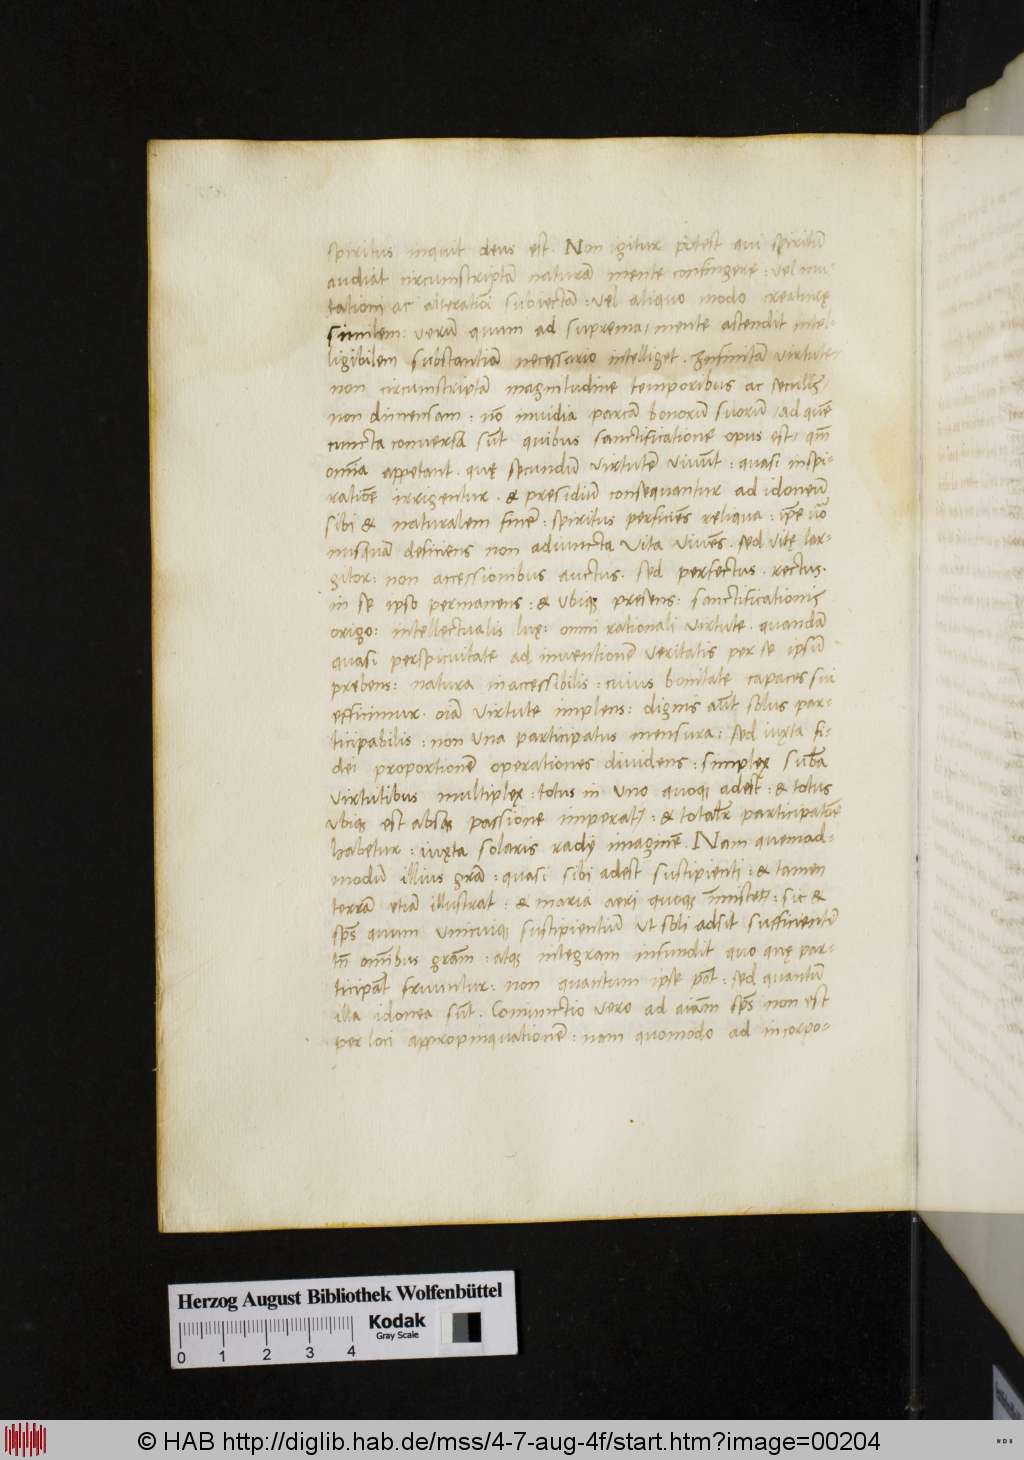 spiritus inquit deus est. Non igitur potest qui spiritū
audiat circumscriptā naturā mente confingere: vel mu-
tationi ac alterationi subiectā: vel aliquo modo creaturę
similem: verū quum ad suprema mente ascendit intel-
ligibilem substantiā necessario intelliget. Infinitā virtute
non circumscriptā magnitudine temporibus ac seculis
non dimensam: nō invidia parcā bonorū suorū, ad quē
cuncta conversa sūt quibus sanctificatione opus est, qm̄
omīa appetant. quę secundū virtutē vivūt: quasi inspi-
ratiōe irrigentur. & presidiū consequantur ad idoneū
sibi & naturalem finē: spiritus perficiēs reliqua: ip̄e vō
nusquā deficiens non adiuncta vita vivēs. sed vitę lar-
gitor: non accessionibus auctus. sed perfectus. rectus.
in se ipso permanens: & ubiq; presens: sanctificationis
origo: intellectualis lux: omni rationali virtute. quandā
quasi perspicuitate ad inventionē veritatis per se ipsū
prebens: natura inaccessibilis: cuius bonitate capaces sui
efficimur. oīa virtute implens: dignis aūt solus par-
ticipabilis: non una participatus mensura: sed iuxta fi-
dei proportionē operationes dividens: simplex subā
virtutibus multiplex: totus in uno quoq; adest: & totus
ubiq; est absq; passione imperat: & totalr̄ participatōe
habetur: iuxta solaris radij imaginē. Nam quemad-
modū illius grā: quasi sibi adest suscipienti: & tamen
terrā etiā illustrat: & maria aeri quoq; īmiscet: sic &
spūs quum unicuiq; suscipientiū ut soli adsit sufficientē
tn̄ omībus grām: atq; integram infundit quo quę par-
ticipāt fruuntur: non quantum ipse pōt: sed quantū
illa idonea sūt. Coniunctio vero ad aīam spūs non est
per loci appropinquationē: nam quomodo ad incorpo-
Herzog August Bibliothek Wolfenbüttel
Kodak
Gray Scale
0 1 2 3 4
© HAB http://diglib.hab.de/mss/4-7-aug-4f/start.htm?image=00204